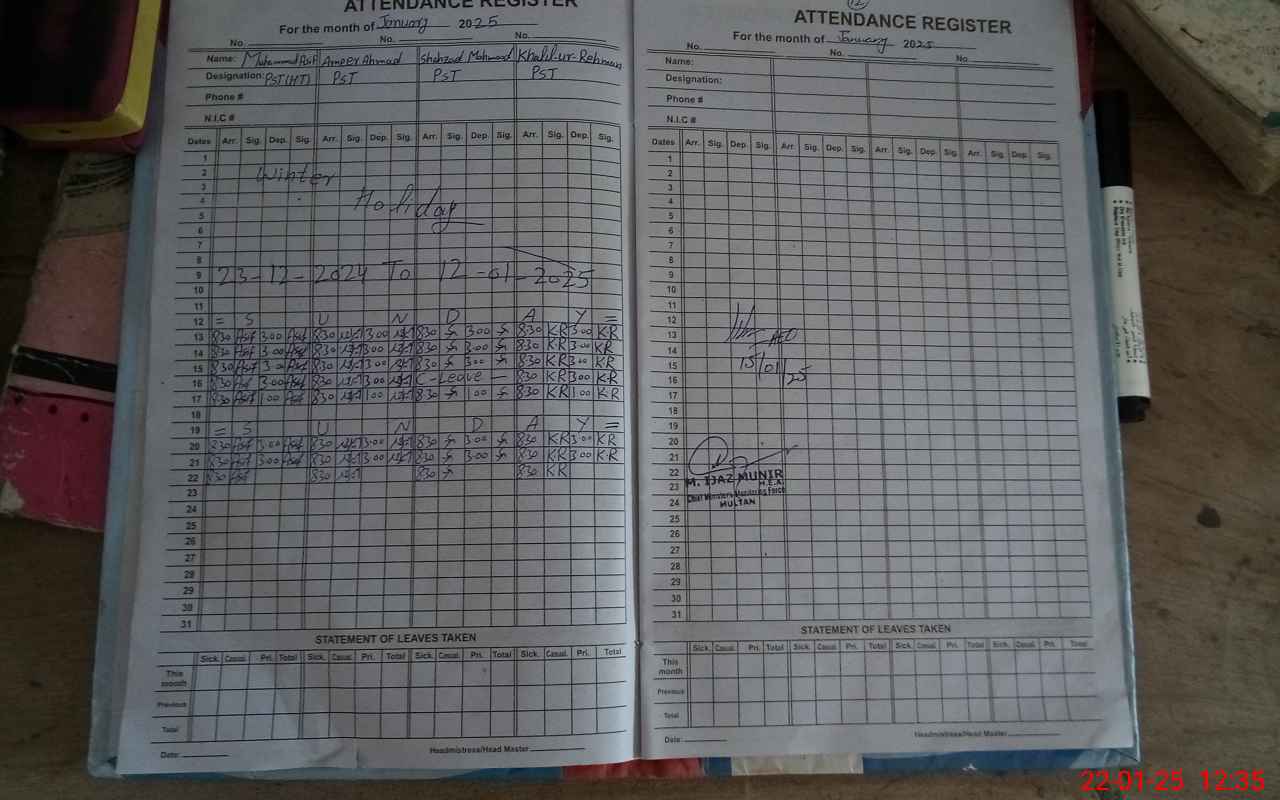 ATTENDANCE REGISTER
For the month of January 2025
No. No. No.
Name: Muhammad Asif Ameer Ahmad Shahzad Mahmood Khalil-ur-Rehman
Designation: PST(HT) PST PST PST
Phone #
N.I.C #
Dates Arr. Sig. Dep. Sig. Arr. Sig. Dep. Sig. Arr. Sig. Dep. Sig. Arr. Sig. Dep. Sig.
1
2 Winter
3
4 Holiday
5
6
7
8
9 23-12-2024 To 12-01-2025
10
11
12 = S U N D A Y =
13 830 Asif 300 Asif 830 300 830 300 830 KR 300 KR
14 830 Asif 300 Asif 830 300 830 300 830 KR 300 KR
15 830 Asif 300 Asif 830 300 830 300 830 KR 300 KR
16 830 Asif 300 Asif 830 300 C-Leave 830 KR 300 KR
17 830 Asif 100 Asif 830 100 830 100 830 KR 100 KR
18
19 = S U N D A Y =
20 830 Asif 300 Asif 830 300 830 300 830 KR 300 KR
21 830 Asif 300 Asif 830 300 830 300 830 KR 300 KR
22 830 Asif 830 830 830 KR
23
24
25
26
27
28
29
30
31
STATEMENT OF LEAVES TAKEN
Sick. Casual. Pri. Total Sick. Casual. Pri. Total Sick. Casual. Pri. Total Sick. Casual. Pri. Total
This month
Previous
Total
Date: Headmistress/Head Master
12
ATTENDANCE REGISTER
For the month of January 2025
No. No. No
Name:
Designation:
Phone #
N.I.C #
Dates Arr. Sig. Dep. Sig. Arr. Sig. Dep. Sig. Arr. Sig. Dep. Sig. Arr. Sig. Dep. Sig.
1
2
3
4
5
6
7
8
9
10
11
12
13 AEO
14
15 15/01/25
16
17
18
19
20
21
22 M. IJAZ MUNIR
23 M.E.A.
24 Chief Minister's Monitoring Force
MULTAN
25
26
27
28
29
30
31
STATEMENT OF LEAVES TAKEN
Sick. Casual. Pri. Total Sick. Casual. Pri. Total Sick. Casual. Pri. Total Sick. Casual. Pri. Total
This month
Previous
Total
Date: Headmistress/Head Master
22-01-25 12:35